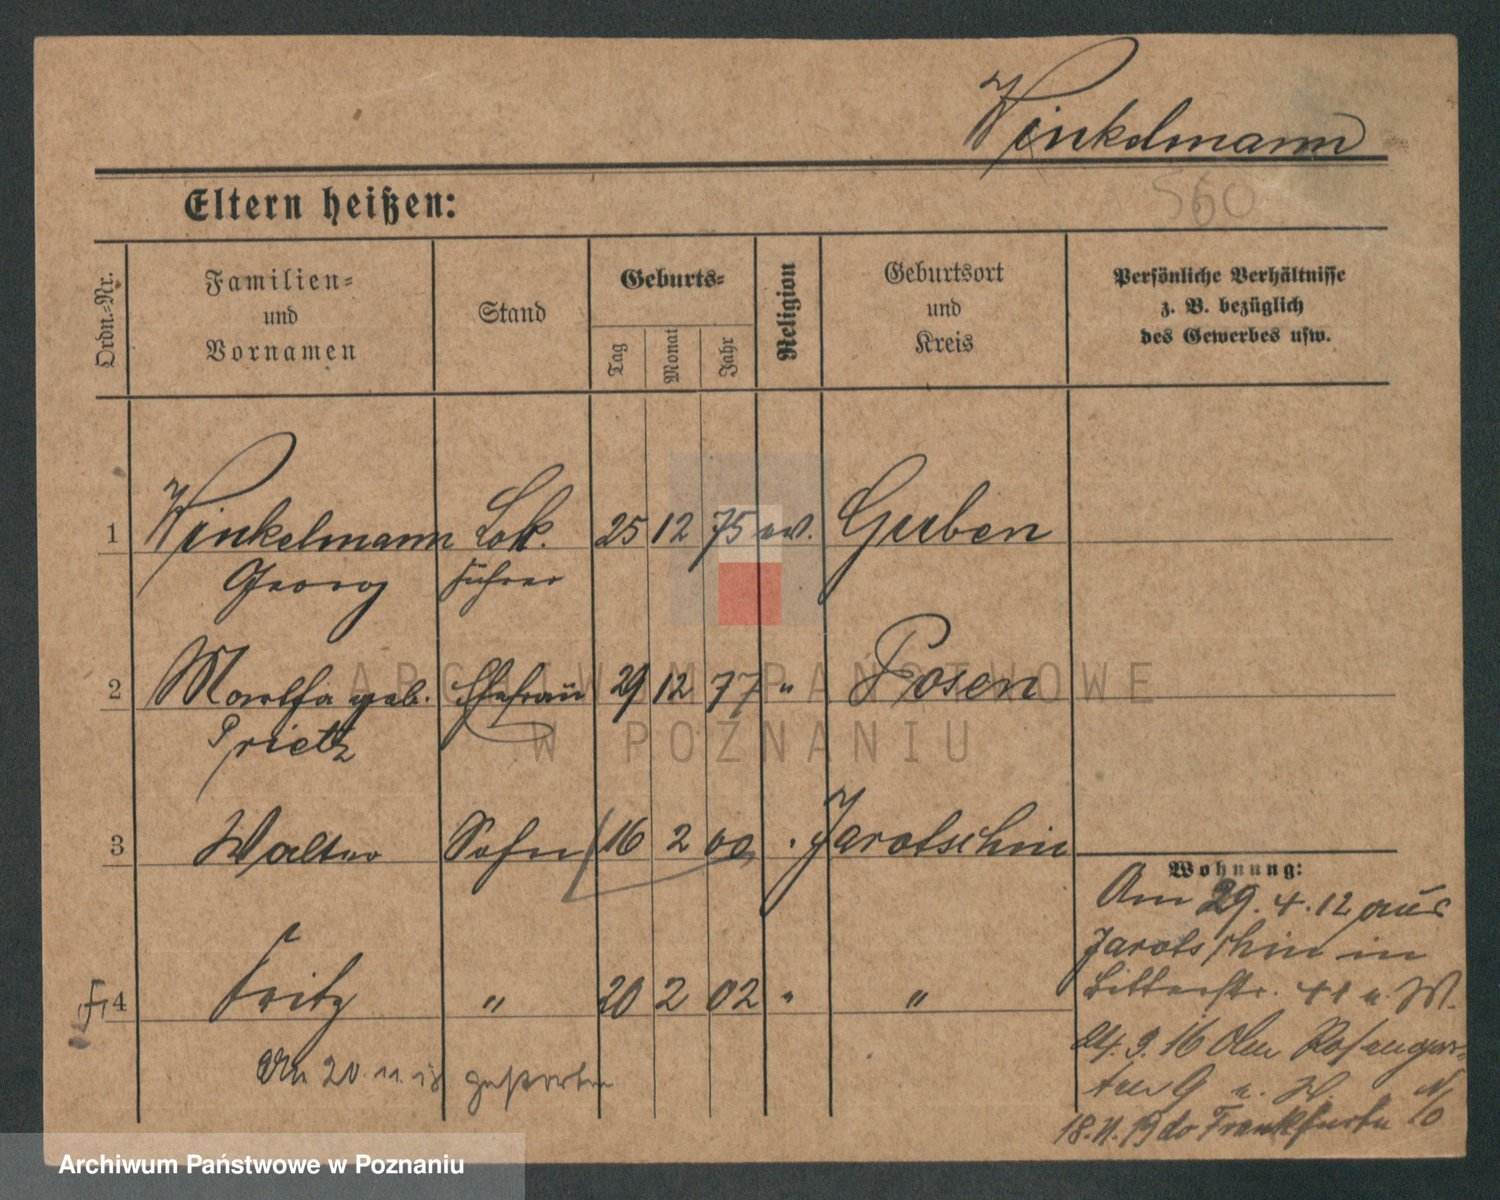 Winkelmann
560
Eltern heißen:
Ordn.-Nr. Familien- und Vornamen Stand Geburts- Tag Monat Jahr Religion Geburtsort und Kreis Persönliche Verhältnisse z. B. bezüglich des Gewerbes usw.
1 Winkelmann Lok. 25 12 75 ev. Guben
Georg führer
2 Martha geb. Ehefrau 29 12 77 " Posen
Prietz
3 Walter Sohn 16 2 00 Jarotschin
Wohnung:
Am 29.4.12 aus
Jarotschin in
41 u. W.
4 Fritz " 20 2 02 " "
24.9.16 Rosengar-
ten 9 u. H.
20.11.18 gestorben
18.11.19 do Frankfurt
ARCHIWUM PAŃSTWOWE
W POZNANIU
Archiwum Państwowe w Poznaniu